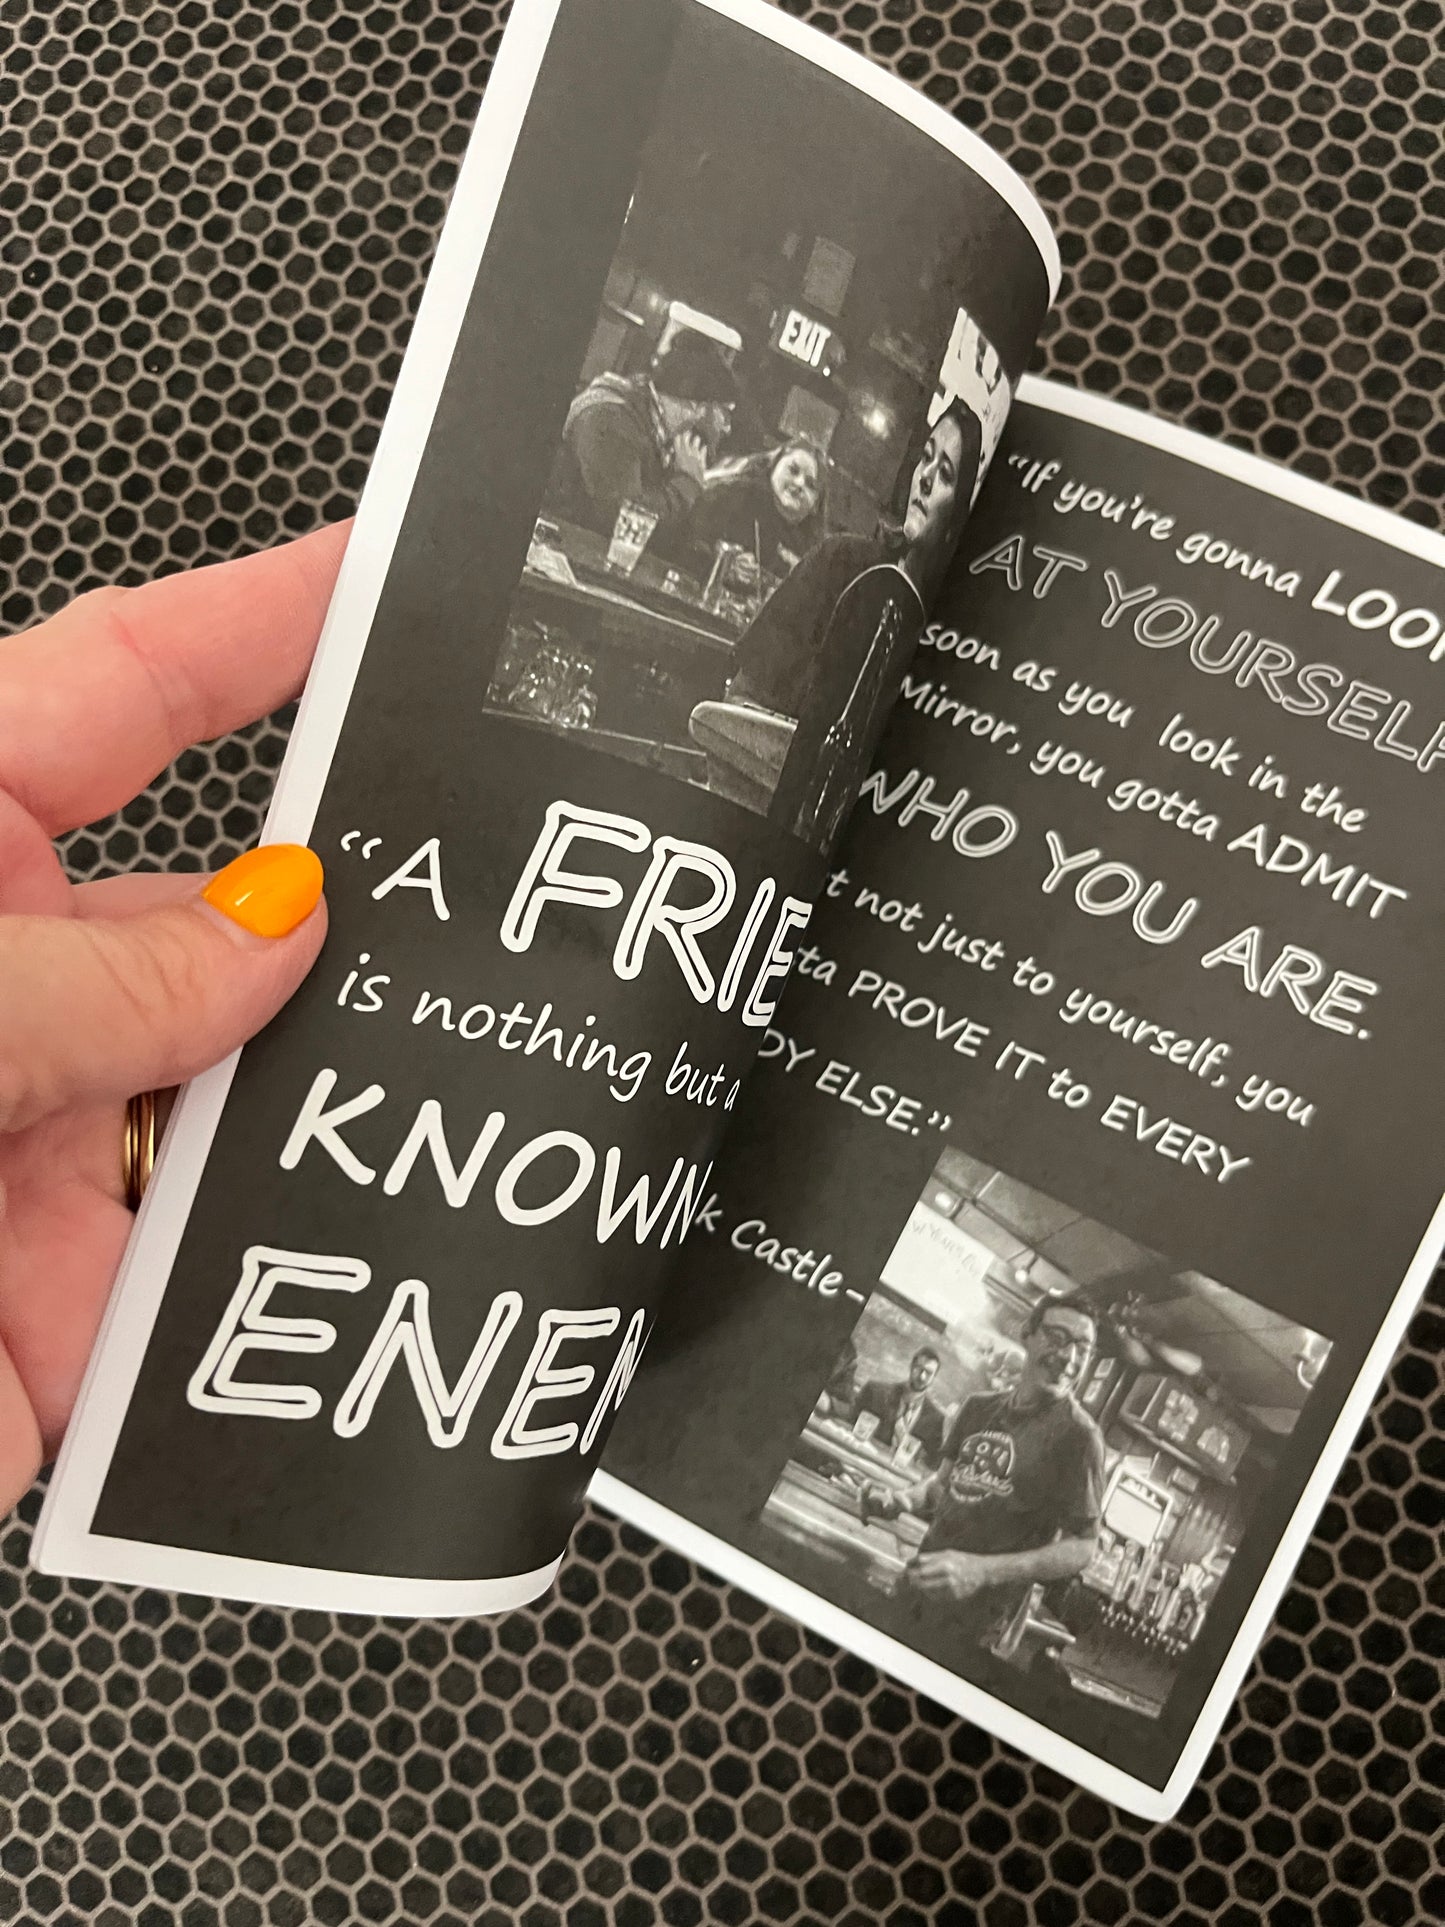 EXIT
"A FRIE
is nothing but a
KNOWN
ENEM
"If you're gonna LOOK
AT YOURSELF
soon as you look in the
Mirror, you gotta ADMIT
WHO YOU ARE.
t not just to yourself, you
tta PROVE IT to EVERY
DY ELSE."
k Castle-